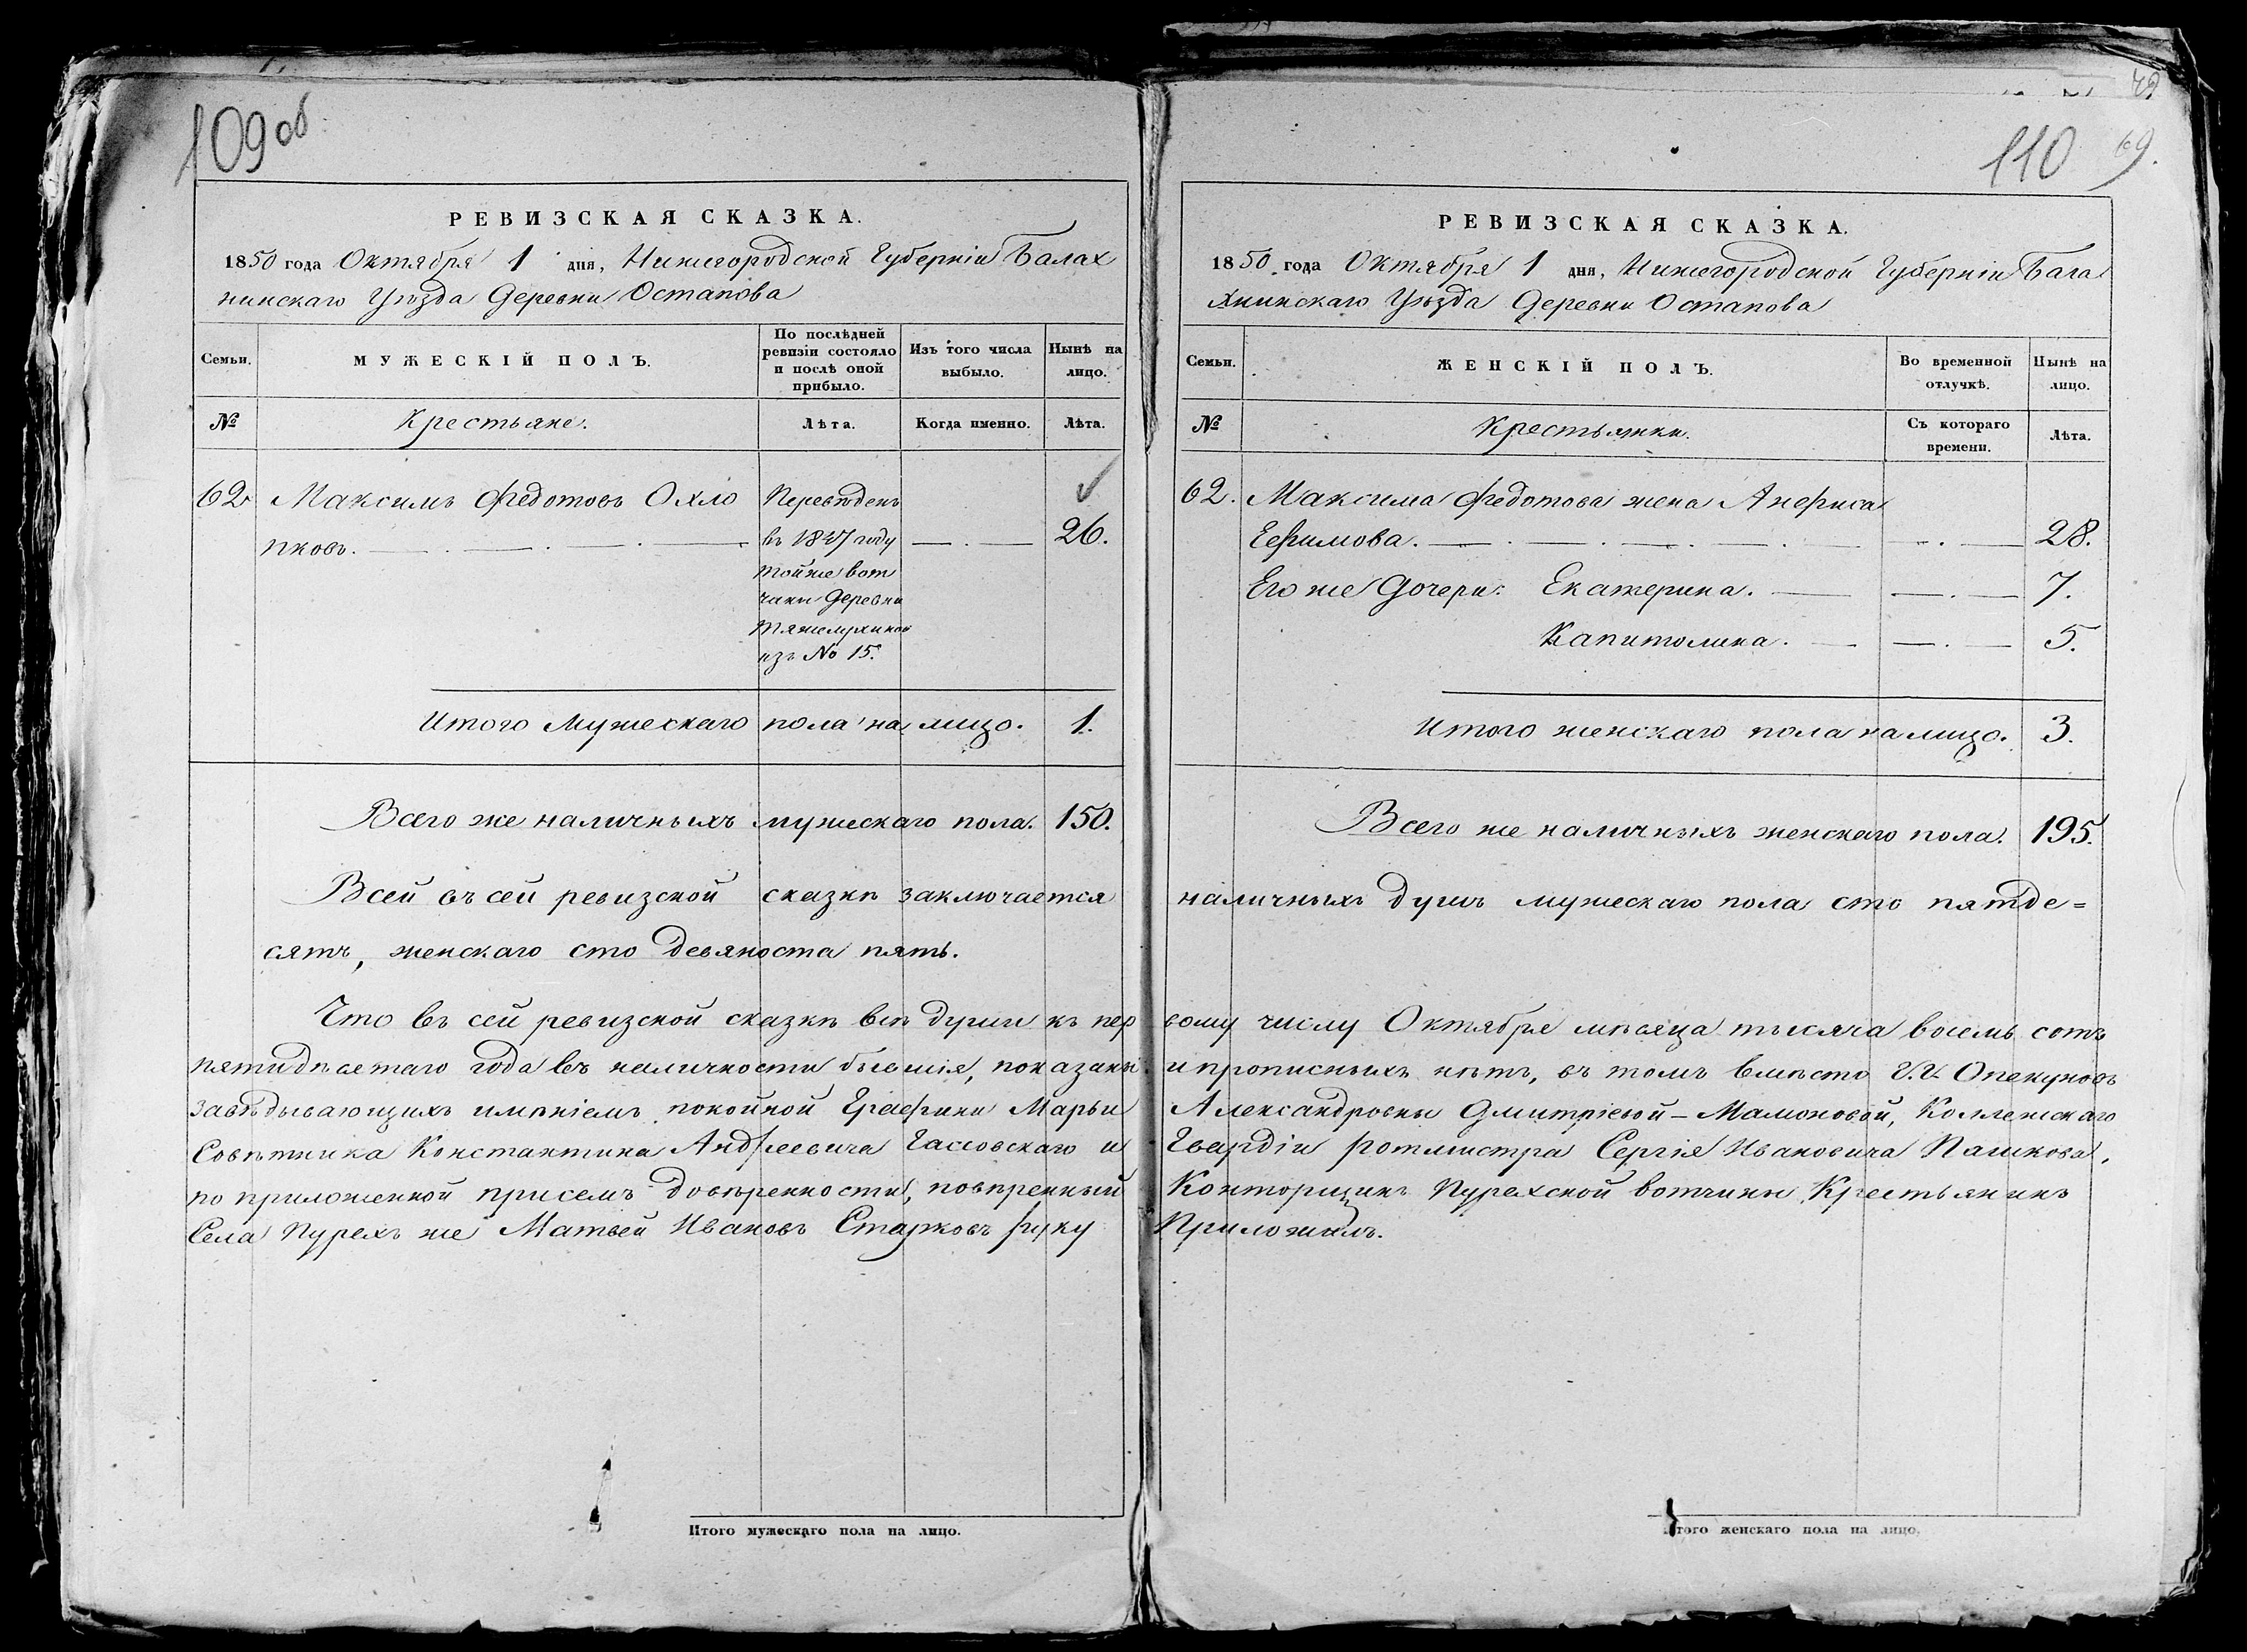 109 об
РЕВИЗСКАЯ СКАЗКА.
1850 года Октября 1 дня, Нижегородской Губерніи Балах
нинскаго Уѣзда Деревни Остапова
Семьи.
МУЖЕСКІЙ ПОЛЪ.
По послѣдней ревизіи состояло и послѣ оной прибыло.
Изъ того числа выбыло.
Нынѣ на лицо.
№
Крестьяне.
Лѣта.
Когда именно.
Лѣта.
62 Максимъ Федотовъ Охло
пковъ. 26.
Перевѣденъ
въ 1847 году
тойже вот
чины Деревни
из№ 15.
Итого Мужескаго пола на лицо. 1.
Всего же наличныхъ мужескаго пола. 150.
Всей въ сей ревизской сказкѣ заключается
сятъ, женскаго сто девяноста пять.
Что въ сей ревизской сказкѣ всѣ души къ пер
пятидѣсетаго года въ наличности бывшія, показаны
завѣдывающихъ имѣніемъ покойной Графини Марьи
Совѣтника Константина Андреевича и
по приложенной присемъ довѣренности, повѣренный
Села Пурехъ же Матвей Ивановъ Старковъ руку
Итого мужескаго пола на лицо.
110 69.
РЕВИЗСКАЯ СКАЗКА.
1850 года Октября 1 дня, Нижегородской Губерніи Бала
хнинскаго Уѣзда Деревни Остапова
Семьи.
ЖЕНСКІЙ ПОЛЪ.
Во временной отлучкѣ.
Нынѣ на лицо.
№
Крестьянки.
Съ котораго времени.
Лѣта.
62. Максима Федотова жена Анфиса
Ефимова. 28.
Его же Дочери: Екатерина. 7.
Капитолина. 5.
Итого женскаго пола на лицо. 3.
Всего же наличныхъ женскаго пола. 195.
наличныхъ душъ мужескаго пола сто пятде=
вому числу Октября мѣсяца тысяча восемь сотъ
и прописныхъ нѣтъ, въ томъ вмѣсто Г.г. Опекуновъ
Александровны Дмитріевой-Мамоновой, Коллежскаго
Гвардіи ротмистра Сергія Ивановича Пашкова,
Конторщикъ Пурехской вотчины Крестьянинъ
Приложилъ.
Итого женскаго пола на лицо.